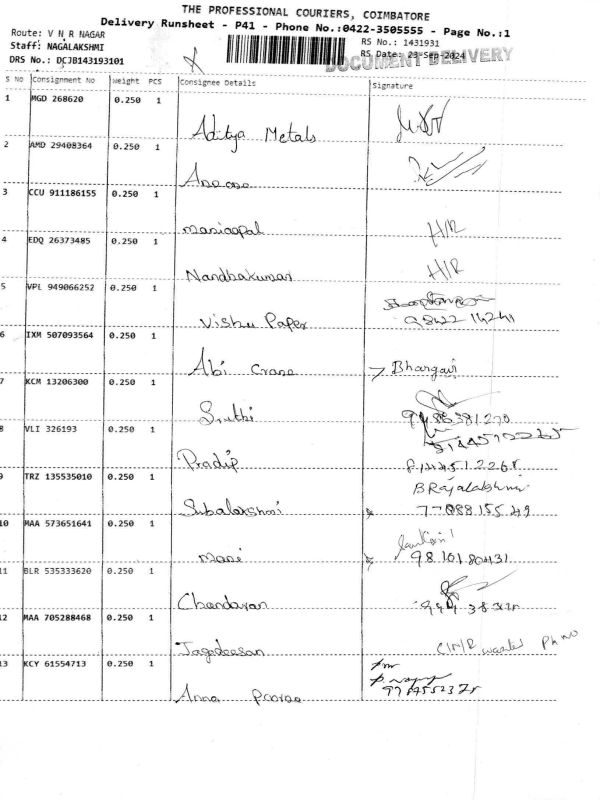 THE PROFESSIONAL COURIERS, COIMBATORE
Delivery Runsheet - P41 - Phone No.:0422-3505555 - Page No.:1
Route: V N R NAGAR
RS No.: 1431931
Staff: NAGALAKSHMI
RS Date: 23-Sep-2024
DRS No.: DCJB143193101
DOCUMENT DELIVERY
S No Consignment No Weight PCS Consignee Details Signature
1 MGD 268620 0.250 1
Aditya Metals
2 AMD 29408364 0.250 1
3 CCU 911186155 0.250 1
maniaopal H/R
4 EDQ 26373485 0.250 1
Nandhakumar H/R
5 VPL 949066252 0.250 1
Vishu Paper 98422 14241
6 IXM 507093564 0.250 1
Abi Crane Bhargavi
7 KCM 13206300 0.250 1
Sruthi
8 VLI 326193 0.250 1
Pradip
9 TRZ 135535010 0.250 1
B Rajalakshmi
Subalakshmi 77088 155 49
10 MAA 573651641 0.250 1
mani 98 101 80431
11 BLR 535333620 0.250 1
Chandaran
12 MAA 705288468 0.250 1
Jagadeesan Ph no
13 KCY 61554713 0.250 1
Anna Poorna